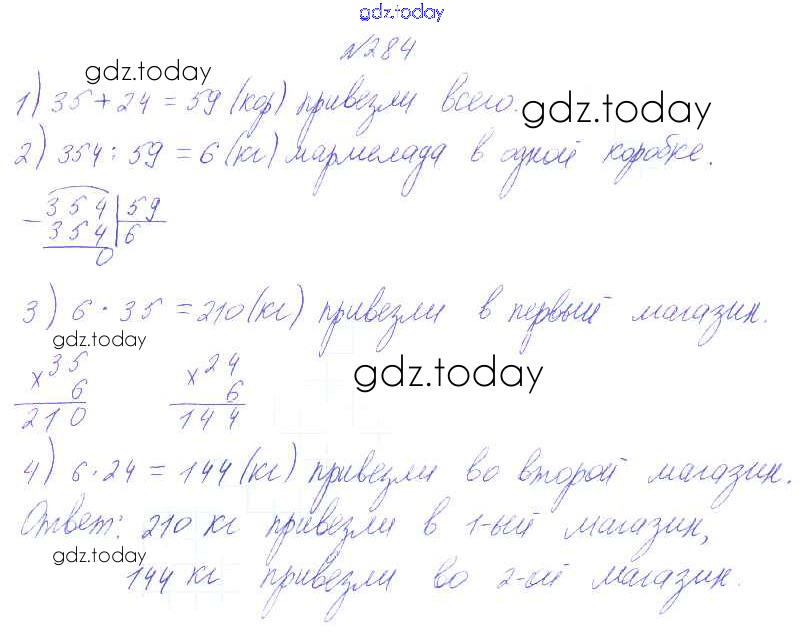 gdz.today
№284
gdz.today
1) 35+24=59 (кор) привезли всего.
gdz.today
2) 354:59=6 (кг) мармелада в одной коробке.
- 354 | 59
354 | 6
0
3) 6·35=210 (кг) привезли в первый магазин.
gdz.today
x 35 x 24
6 6
210 144
gdz.today
4) 6·24=144 (кг) привезли во второй магазин.
Ответ: 210 кг привезли в 1-ый магазин,
gdz.today
144 кг привезли во 2-ой магазин.